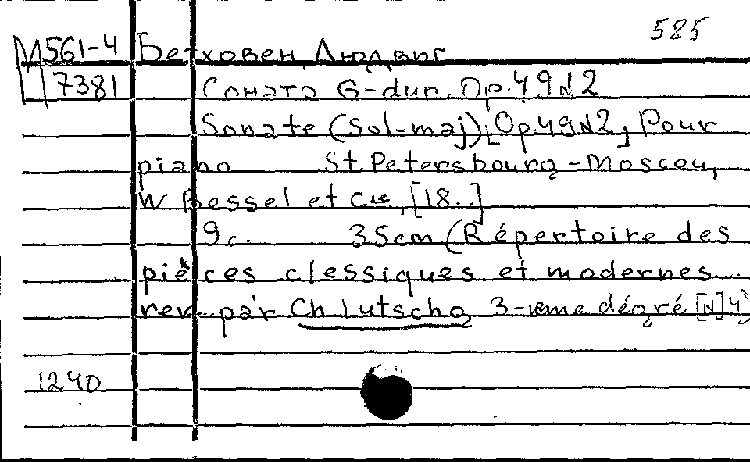 585
М561-4 Бетховен, Людвиг
7381 Соната G-dur. Op. 49 N2
Sonate (Sol-maj), [Op 49 N2], Pour
piano St. Petersbourg - Moscou,
W Bessel et Cie, [18..]
9 с. 35 cm (Répertoire des
pièces clessiques et modernes...
rev. par Ch Lutschg 3-ème dégré [N] 4)
1240